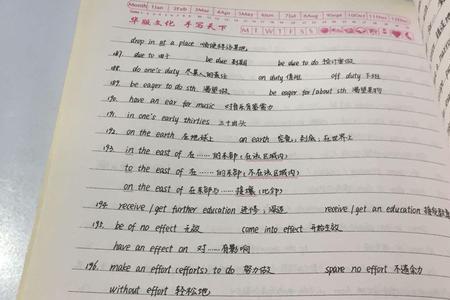 Month 1Jan 2Feb 3Mar 4Apr 5May 6Jun 7Jul 8Aug 9Sep 10Oct 11Nov 12Dec
华版文化 手写天下 M T W T F S S
drop in at a place 顺便拜访某地
187. due to 由于 be due 到期 be due to do 预计要做
188. do one's duty 尽某人的责任 on duty 值班 off duty 下班
189. be eager to do sth. 渴望做 be eager for/about sth. 渴望某物
190. have an ear for music 对音乐有鉴赏力
191. in one's early thirties 三十出头
192. on the earth 在地球上 on earth 究竟;到底;在世界上
193. in the east of 在……的东部(在该区域内)
to the east of 在……的东部(不在该区域内)
on the east of 在东部与……接壤(比邻)
194. receive/get further education 进修;深造 receive/get an education 接受教育
195. be of no effect 无效 come into effect 开始生效
have an effect on 对……有影响
196. make an effort (efforts) to do 努力做 spare no effort 不遗余力
without effort 轻松地